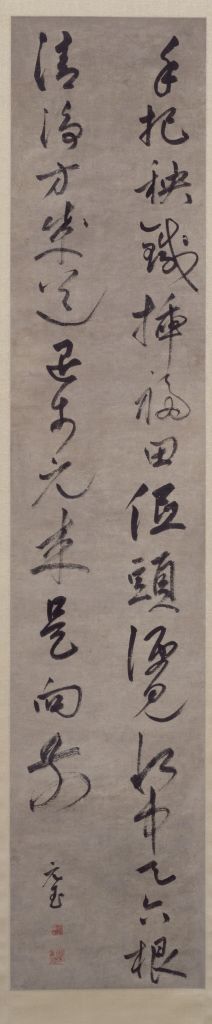 手把秧鍼插福田低頭便見水中天六根
清淨方成道退步元来是向前